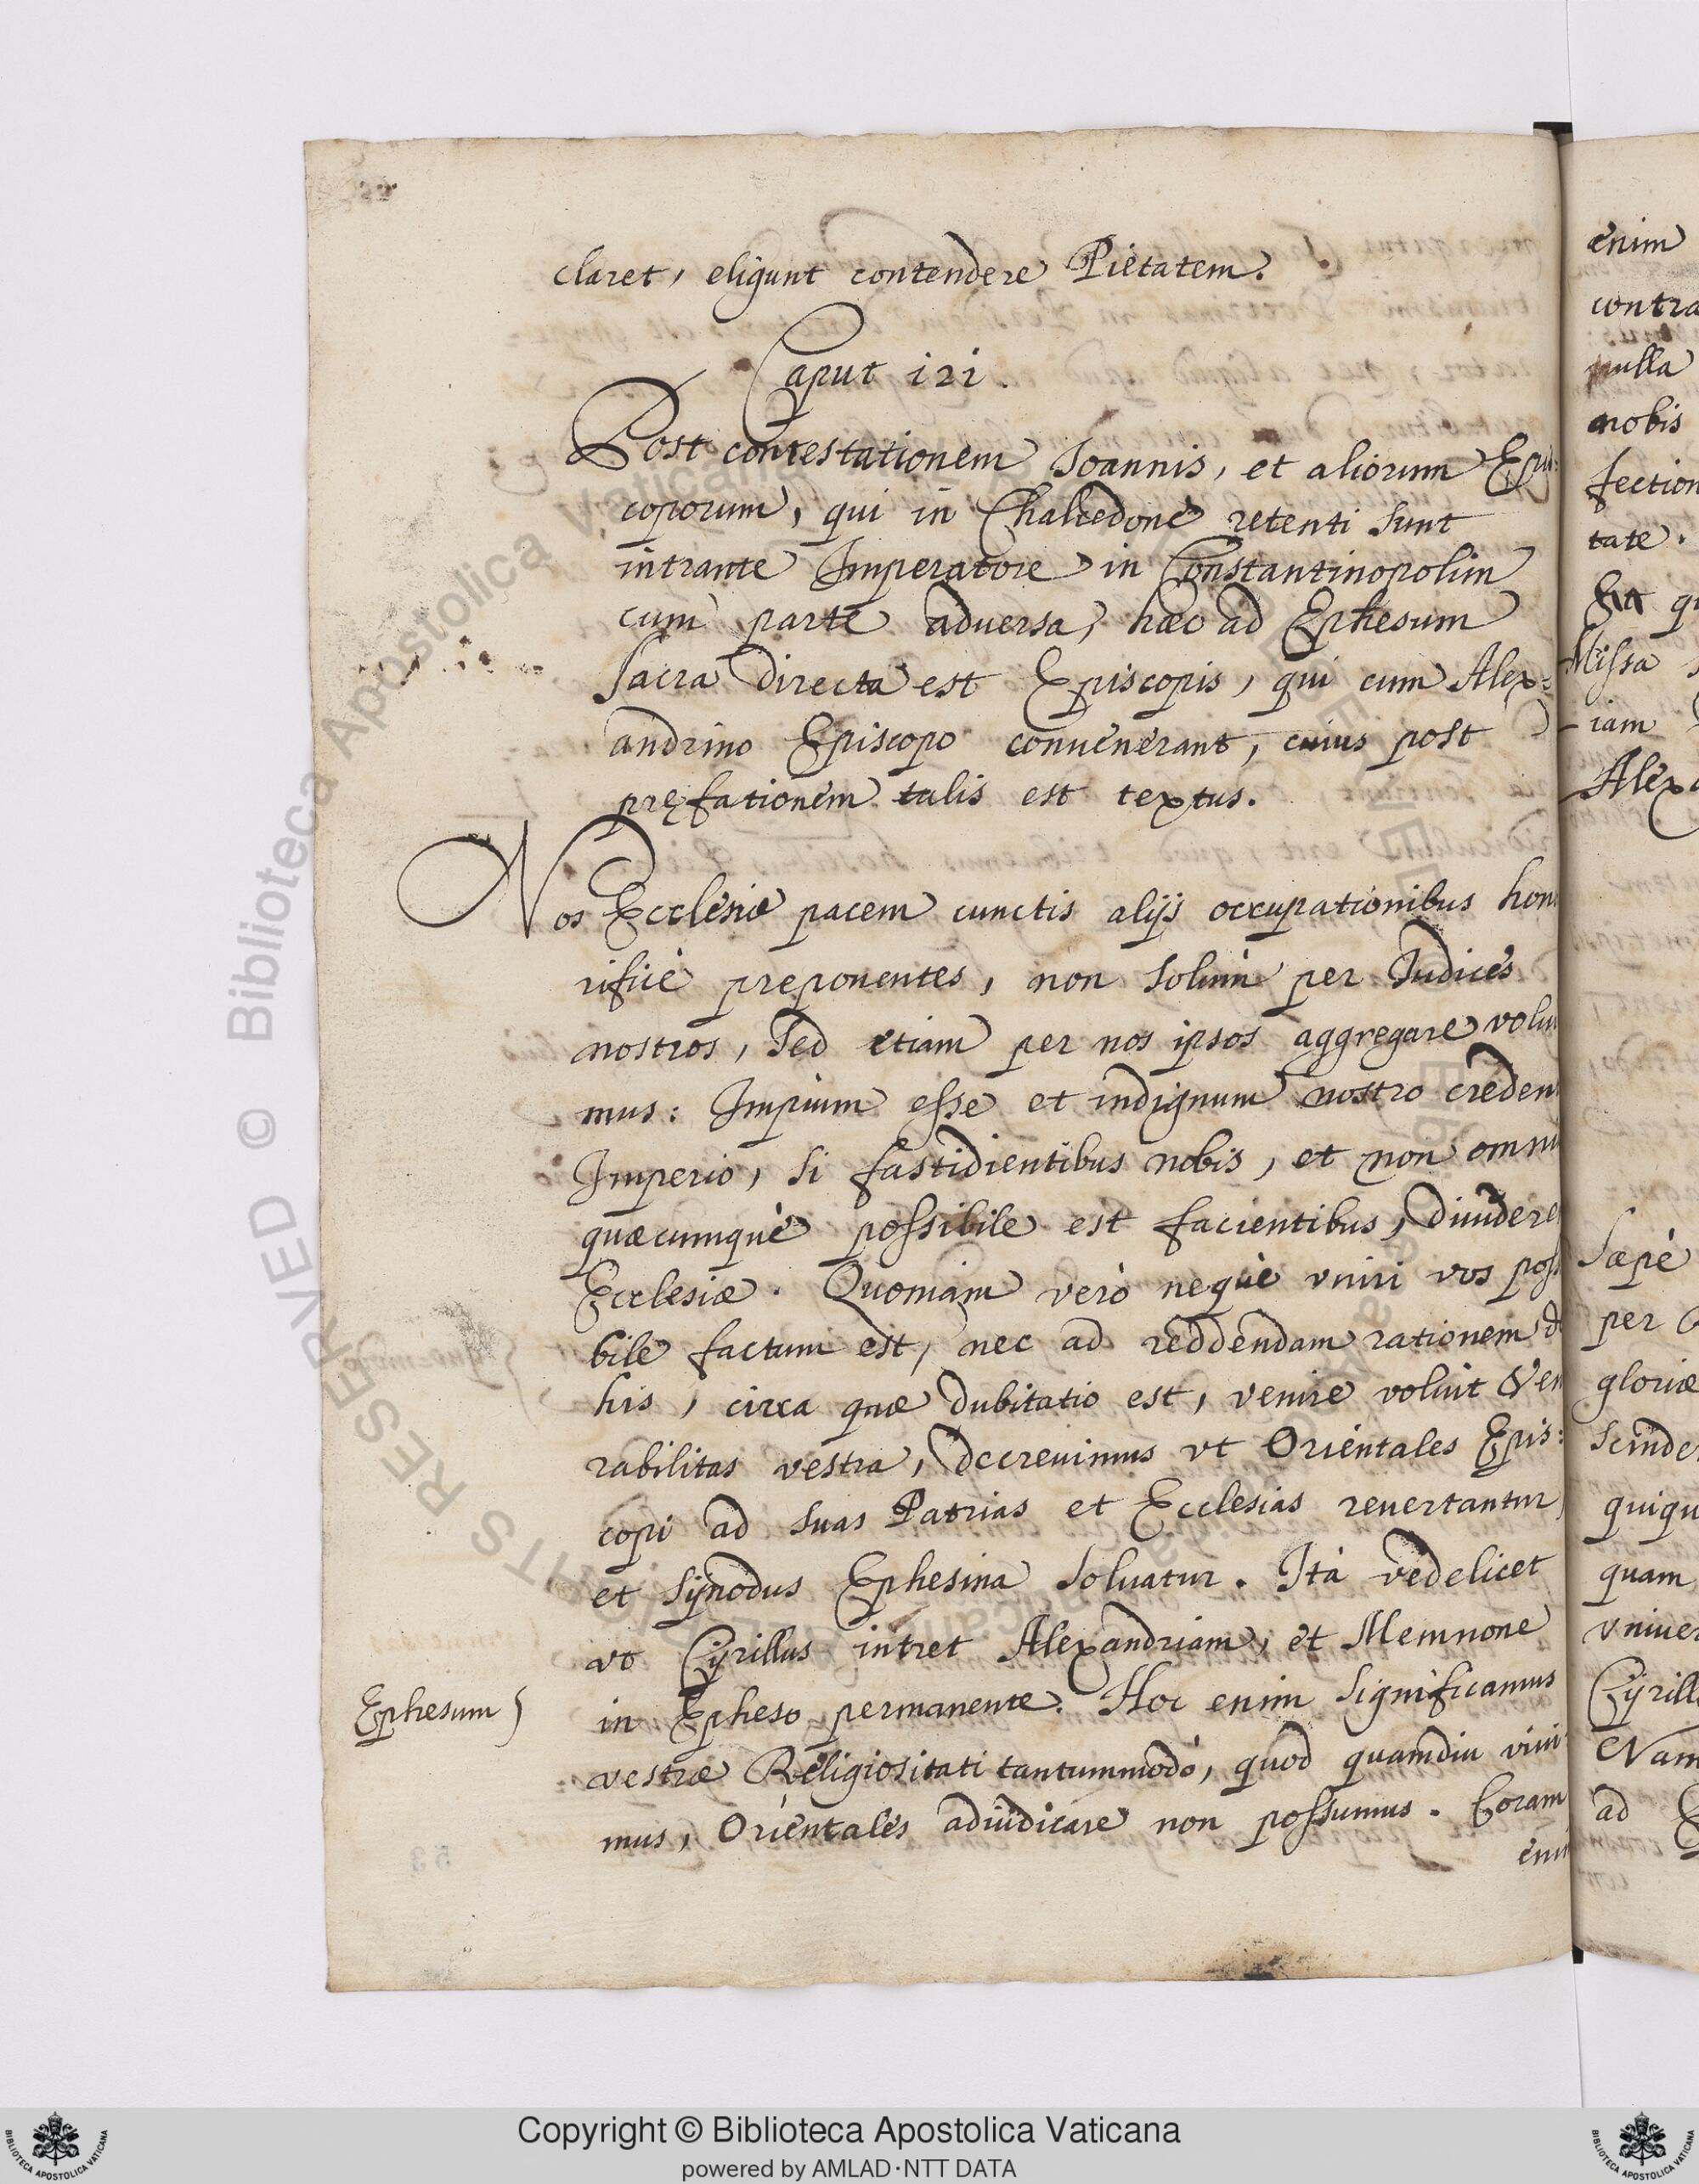 claret, eligunt contendere Pietatem.
Caput 121.
Post contestationem Ioannis, et aliorum Epis:
coporum, qui in Chalcedonè retenti sunt
intrante Imperatore in Constantinopolim
cum parte aduersa, hæc ad Ephesum
Sacra directa est Episcopis, qui cum Alex:
andrino Episcopo conuenerant, cuius post
pręfationem talis est textus.
Nos Ecclesiæ pacem cunctis alijs occupationibus hono
rificè preponentes, non solùm per Iudices
nostros, sed etiam per nos ipsos aggregare volui
mus: Impium esse et indignum nostro creden
Imperio, si fastidientibus nobis, et non omni
quæcumquè possibile est facientibus, diuidere
Ecclesiæ. Quoniam verò nequè vniri vos possi
bile factum est, nec ad reddendam rationem de
his, circa quæ dubitatio est, venire voluit Ven
rabilitas vestra, decreuimus vt Orientales Epis:
copi ad suas Patrias et Ecclesias reuertantur,
et Synodus Ephesina soluatur. Ità vedelicet
vt Cyrillus intret Alexandriam, et Memnone
Ephesum in Epheso permanente. Hoc enim significamus
vestræ Religiositati tantummodò, quod quamdiu viui
mus, Orientales adiudicare non possumus. Coram
enim
enim
contra
nulla
nobis
fection
tate.
Et qu
Missa
iam
Alexa
Sæpè
per
gloriæ
scinde
quiqu
quam
vniuer
Cyrill
Nam
ad
© Biblioteca Apostolica Vaticana
Copyright © Biblioteca Apostolica Vaticana
powered by AMLAD·NTT DATA
BIBLIOTECA APOSTOLICA VATICANA
BIBLIOTECA APOSTOLICA VATICANA